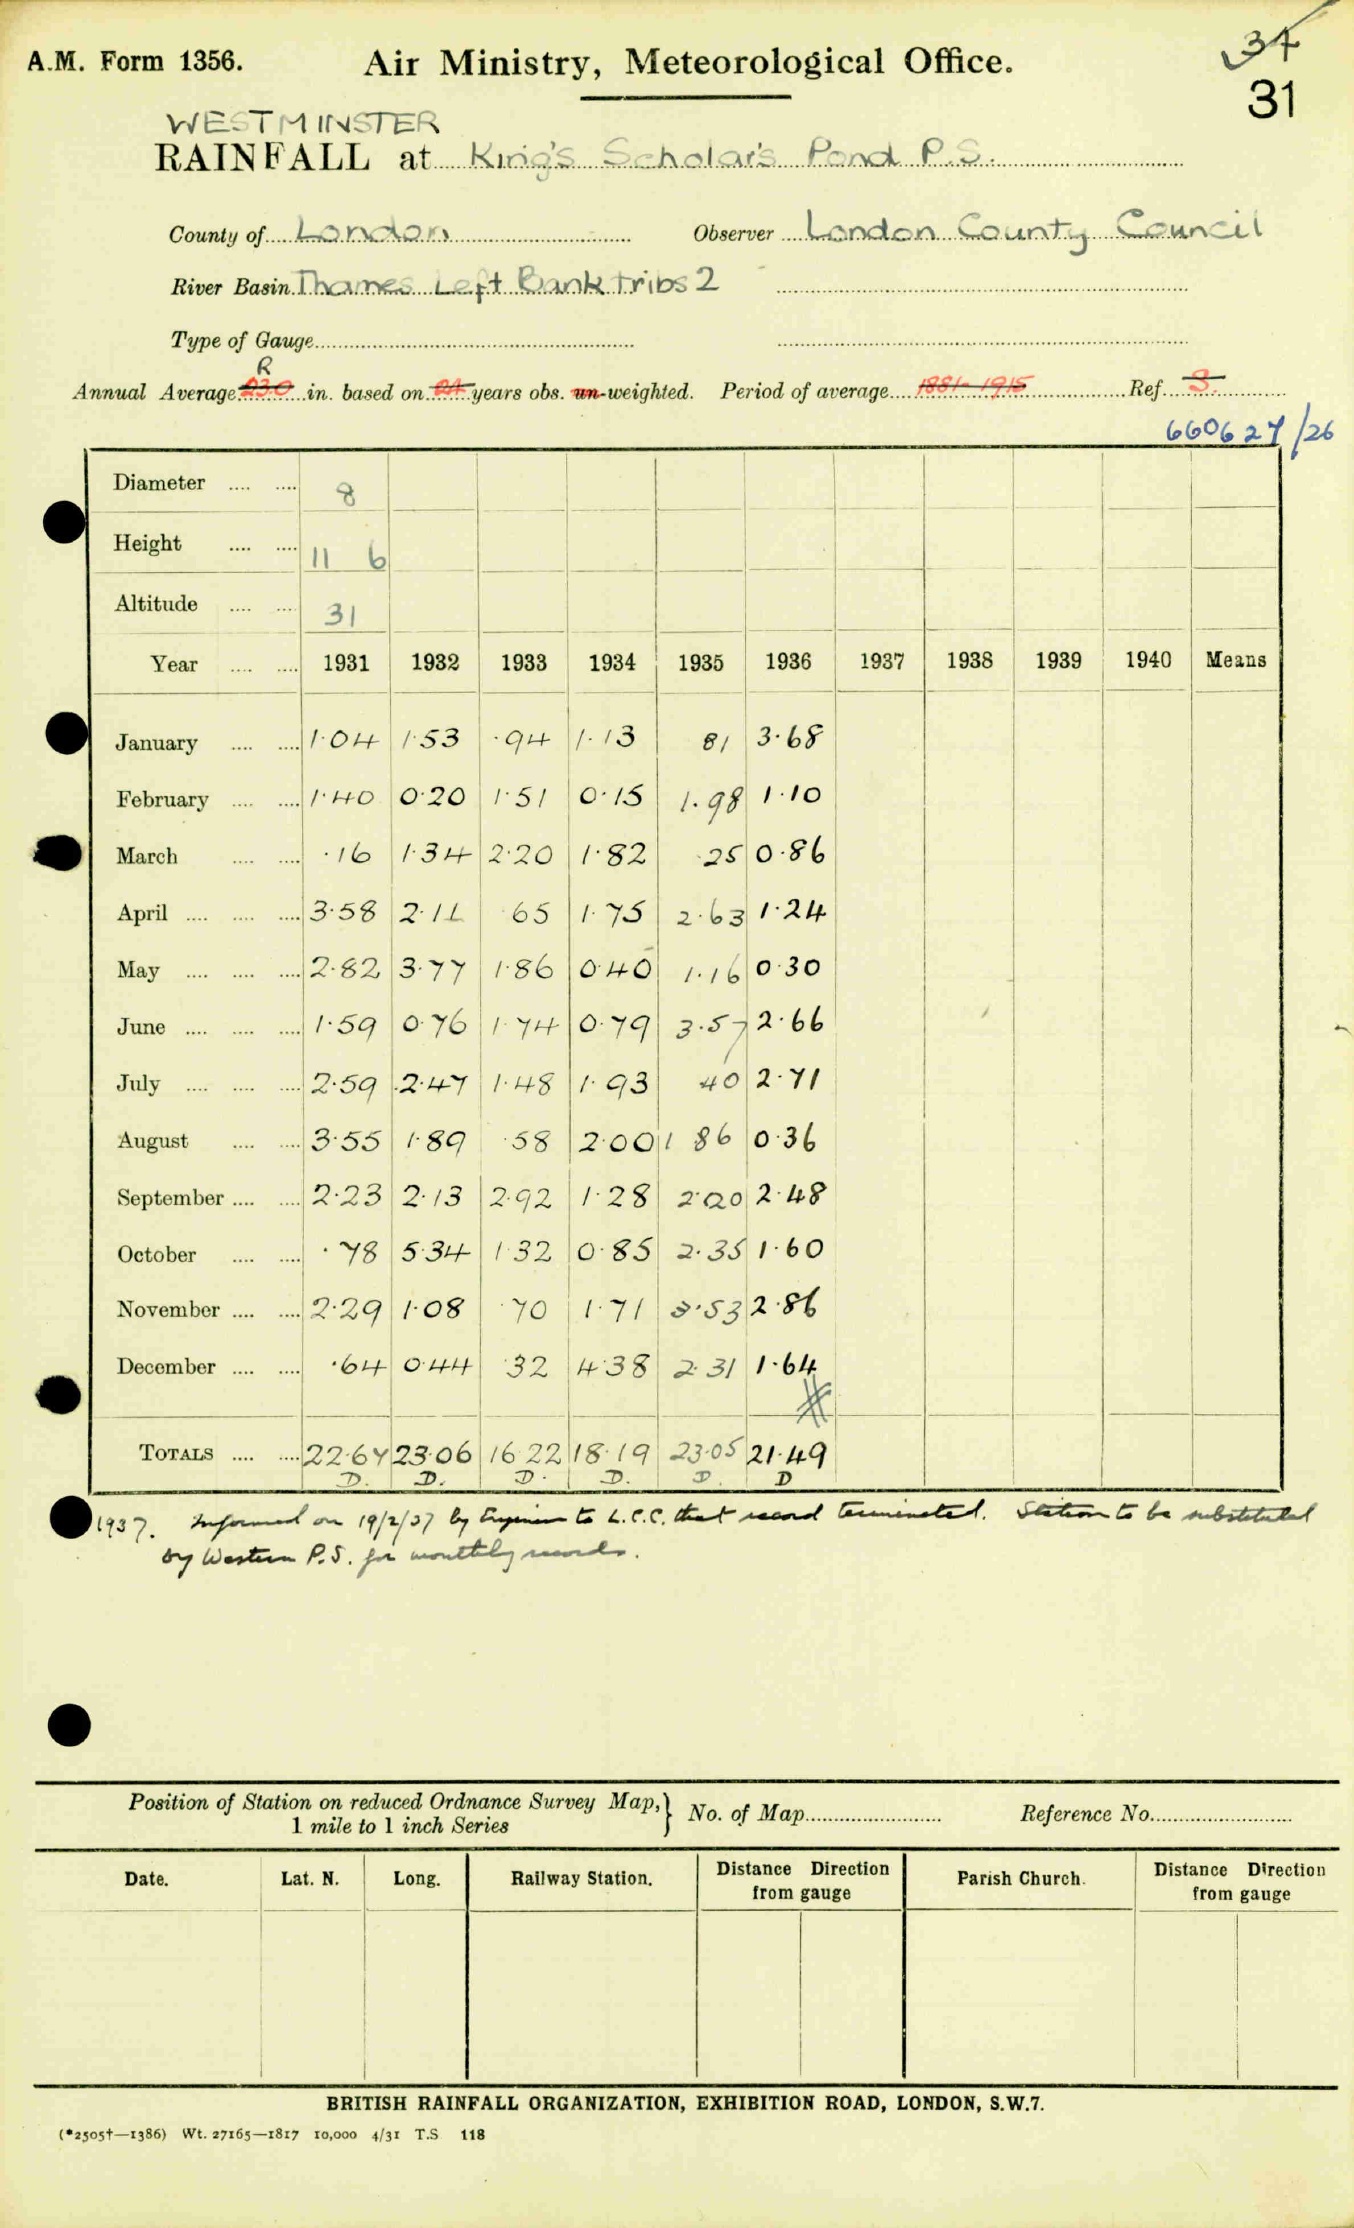 A.M. Form 1356.
Air Ministry, Meteorological Office.
34
31
WESTMINSTER
RAINFALL at King's Scholar's Pond P.S.
County of London Observer London County Council
River Basin Thames Left Bank tribs 2
Type of Gauge
R
Annual Average 23.0 in. based on 24 years obs. un-weighted. Period of average 1881-1915 Ref. S.
660627/26
Diameter .... .... 8
Height .... .... 11 6
Altitude .... .... 31
Year .... .... 1931 1932 1933 1934 1935 1936 1937 1938 1939 1940 Means
January .... .... 1.04 1.53 .94 1.13 81 3.68
February .... .... 1.40 0.20 1.51 0.15 1.98 1.10
March .... .... .16 1.34 2.20 1.82 .25 0.86
April .... .... .... 3.58 2.11 .65 1.75 2.63 1.24
May .... .... .... 2.82 3.77 1.86 0.40 1.16 0.30
June .... .... .... 1.59 0.76 1.74 0.79 3.57 2.66
July .... .... .... 2.59 2.47 1.48 1.93 40 2.71
August .... .... 3.55 1.89 .58 2.00 1 86 0.36
September .... .... 2.23 2.13 2.92 1.28 2.20 2.48
October .... .... .78 5.34 1.32 0.85 2.35 1.60
November .... .... 2.29 1.08 .70 1.71 3.53 2.86
December .... .... .64 0.44 .32 4.38 2.31 1.64
TOTALS .... .... 22.67 23.06 16.22 18.19 23.05 21.49
D. D. D. D. D. D
1937. Informed on 19/2/37 by Engineer to L.C.C. that record terminated. Station to be substituted
by Western P.S. for monthly records.
Position of Station on reduced Ordnance Survey Map,} No. of Map Reference No.
1 mile to 1 inch Series
Date. Lat. N. Long. Railway Station. Distance Direction from gauge Parish Church. Distance Direction from gauge
BRITISH RAINFALL ORGANIZATION, EXHIBITION ROAD, LONDON, S.W.7.
(*2505†—1386) Wt. 27165—1817 10,000 4/31 T.S 118